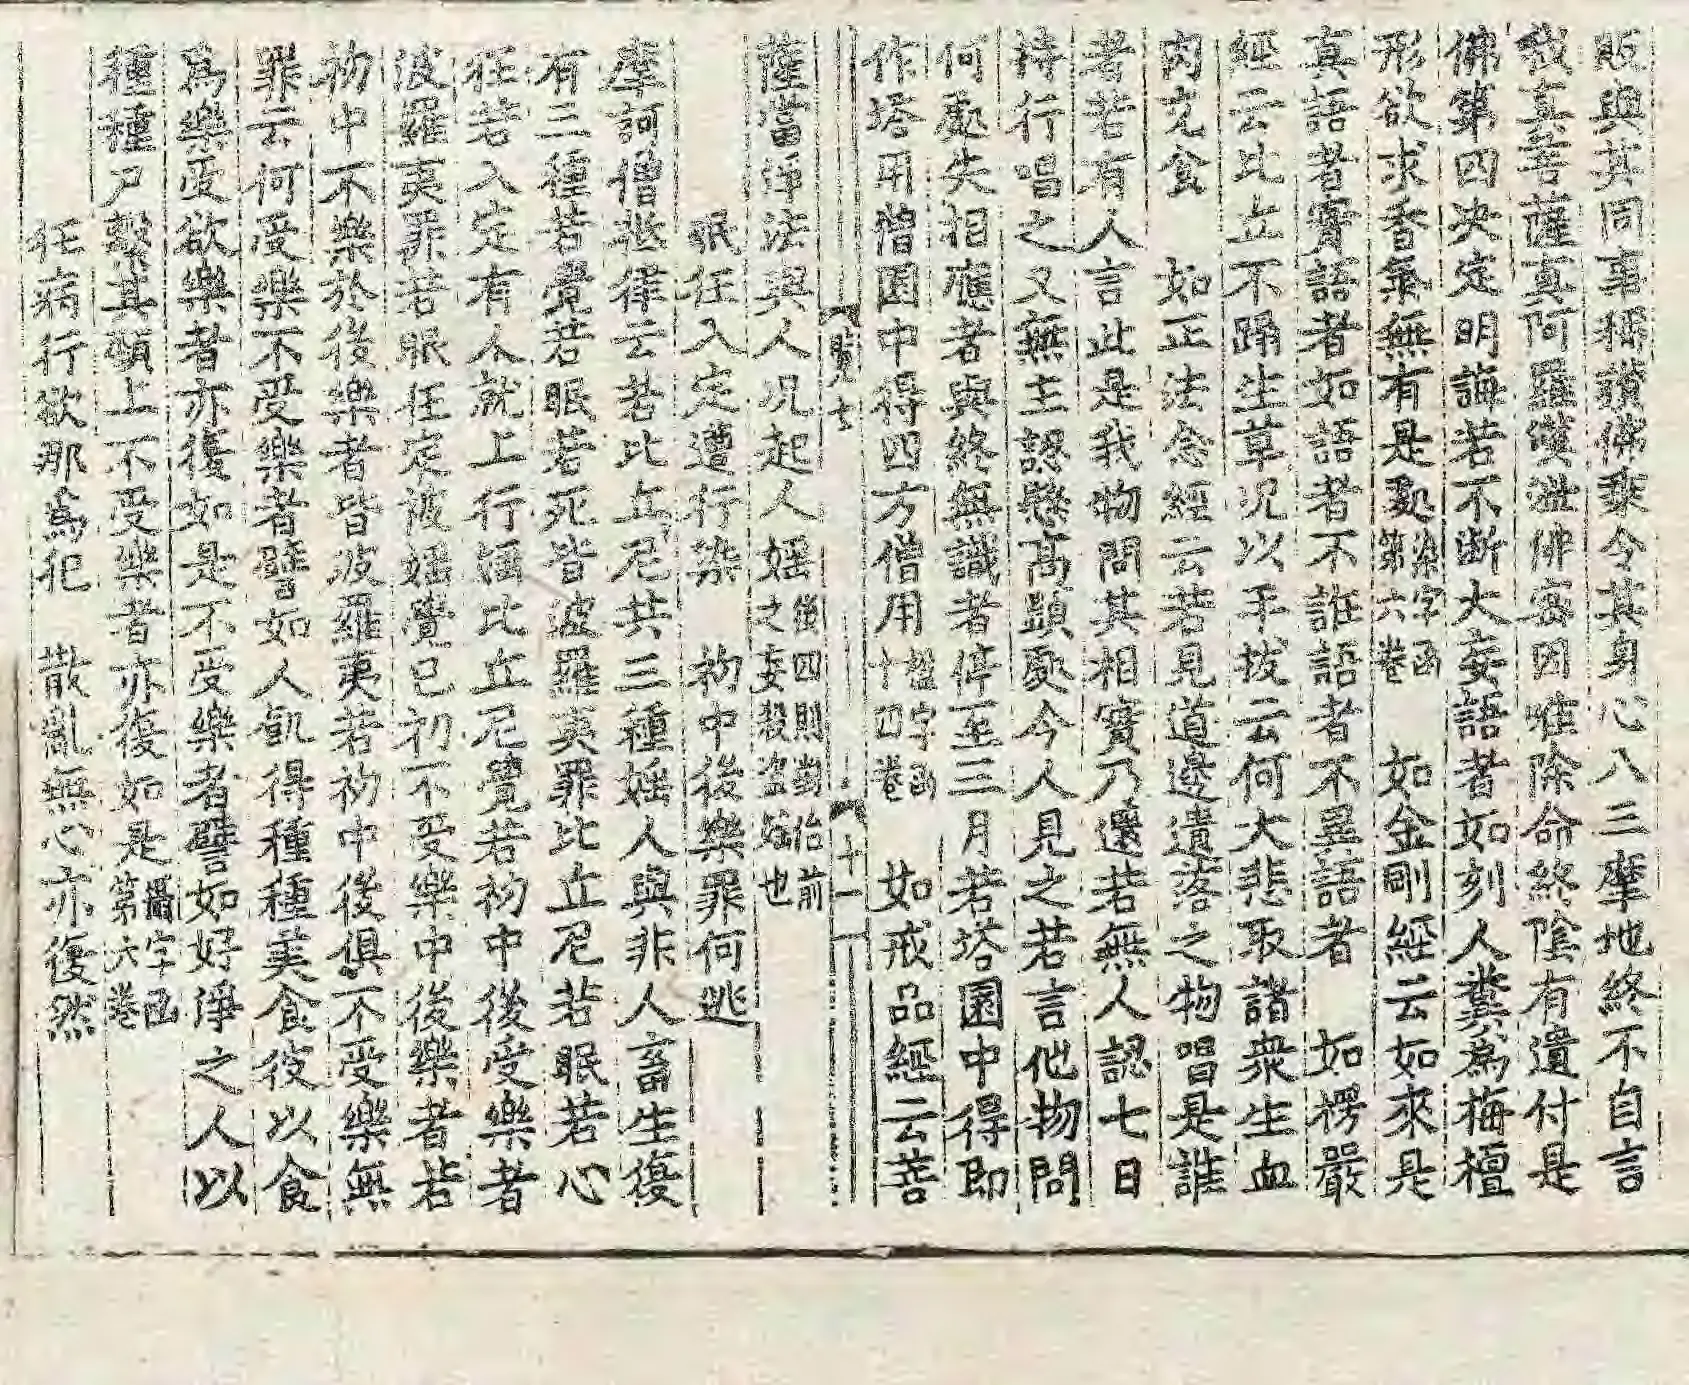 販與其同事稱讚佛乘令其身心入三摩地終不自言
我真菩薩真阿羅漢泄佛密因唯除命終陰有遺付是
佛第四決定明誨若不斷大妄語者如刻人糞為栴檀
形欲求香氣無有是處染字函第六卷 如金剛經云如來是
真語者實語者如語者不誑語者不異語者 如楞嚴
經云比丘不踊生草況以手拔云何大悲取諸衆生血
肉充食 如正法念經云若見道邊遺落之物唱是誰
者若有人言此是我物問其相實乃還若無人認七日
持行唱之又無主認懸高顯處今人見之若言他物問
何處失相應者與終無識者停至三月若塔園中得即
作塔用僧園中得四方僧用字函十四卷 如戒品經云菩
覽七 十一
薩當淨法與人況起人婬後四則對治前之妄殺盜婬也
眠狂入定遭行染 初中後樂罪何逃
摩訶僧祇律云若比丘尼共三種婬人與非人畜生復
有三種若覺若眠若死皆波羅夷罪比丘尼若眠若心
狂若入定有人就上行婬比丘尼覺若初中後受樂者
波羅夷罪若眠狂定被婬覺已初不受樂中後樂者若
初中不樂於後樂者皆波羅夷若初中後俱不受樂無
罪云何受樂不受樂者譬如人飢得種種美食彼以食
為樂受欲樂者亦復如是不受樂者譬如好淨之人以
種種尸繫其頸上不受樂者亦復如是攝字函第六卷
狂病行欲那為犯 散亂無心亦復然